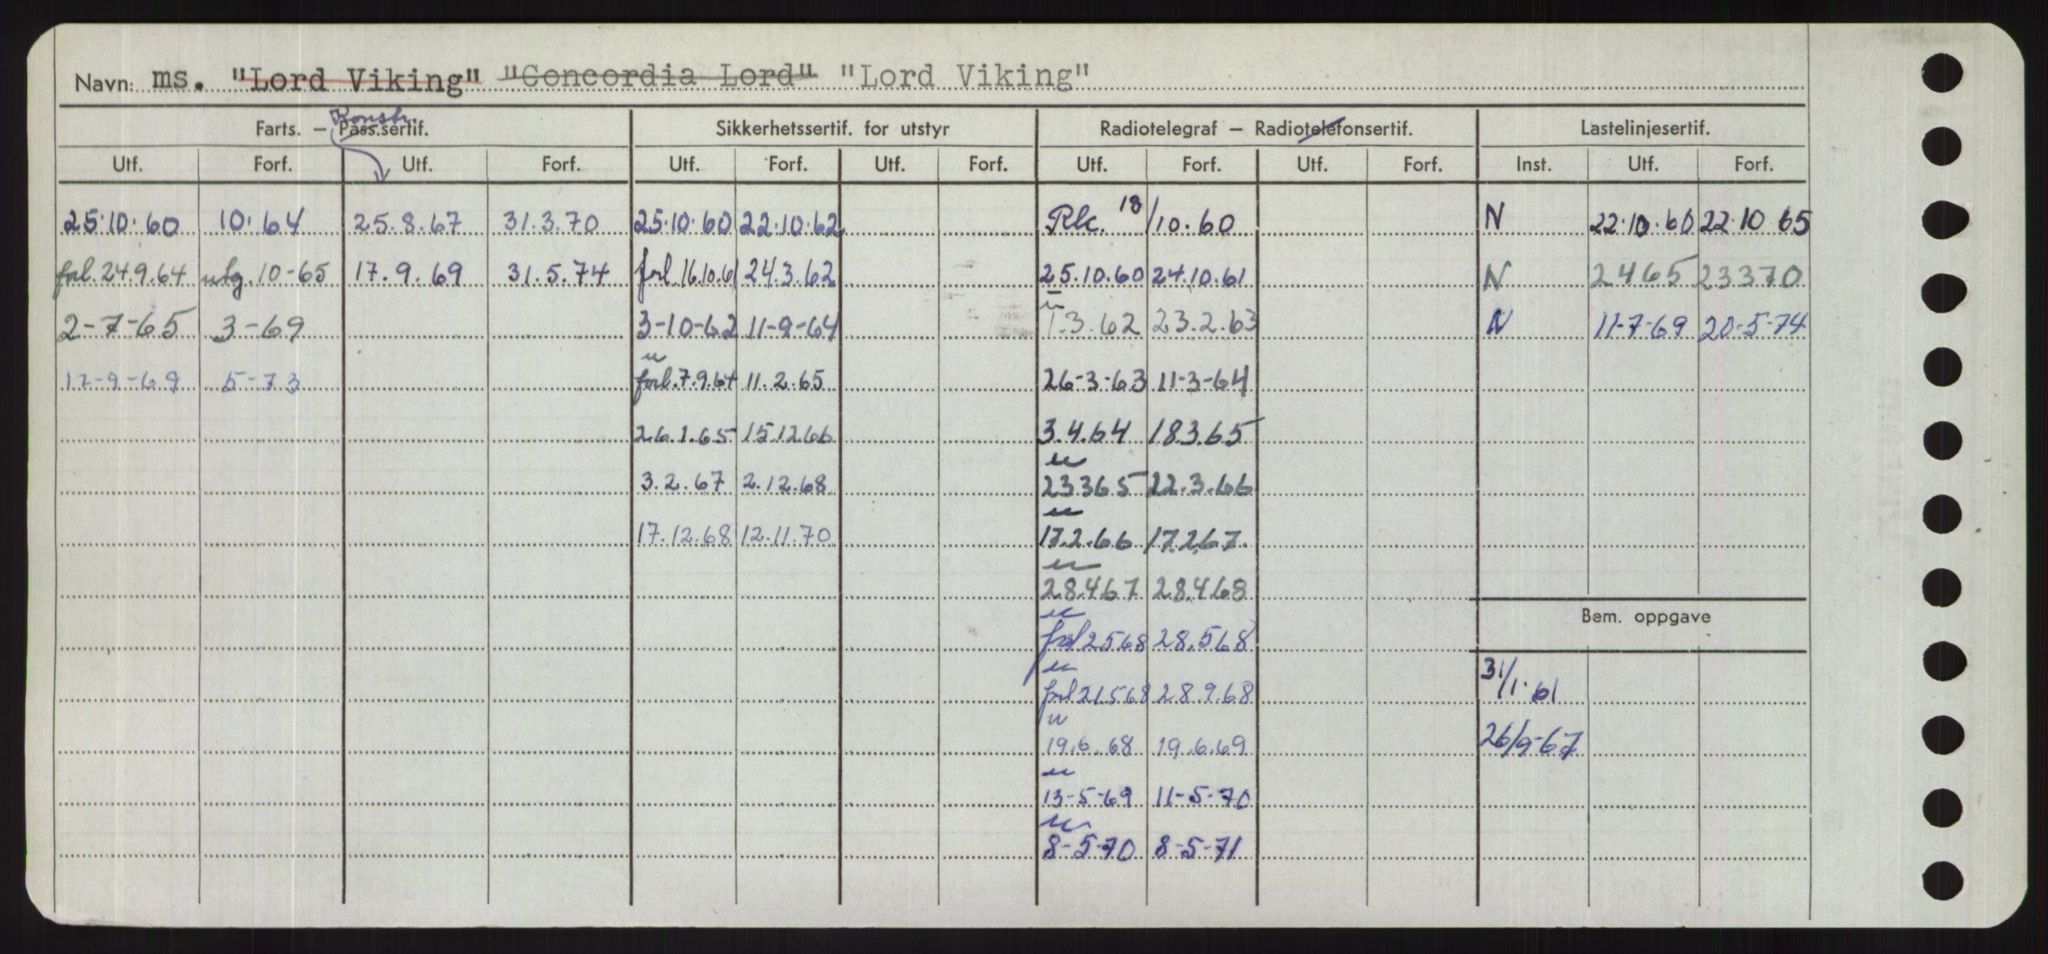 Navn: ms. "Lord Viking" "Concordia Lord" "Lord Viking"
Konstr.
Farts. – Pass.sertif. Sikkerhetssertif. for utstyr Radiotelegraf – Radiotelefonsertif. Lastelinjesertif.
Utf. Forf. Utf. Forf. Utf. Forf. Utf. Forf. Utf. Forf. Utf. Forf. Inst. Utf. Forf.
25.10.60 10.64 25.8.67 31.3.70 25.10.60 22.10.62 Rk. 18/10.60 N 22.10.60 22.10 65
forl. 24.9.64 utg. 10-65 17.9.69 31.5.74 forl 16.10.61 24.3.62 25.10.60 24.10.61 N 2465 23370
2-7-65 3-69 3-10-62 11-9-64 1.3.62 23.2.63 N 11-7-69 20-5-74
17-9-69 5-73 forl. 7.9.64 11.2.65 26-3-63 11-3-64
26.1.65 151266 3.4.64 18365
3.2.67 2.12.68 23365 22.3.66
17.12.68 12.11.70 17.2.66 17.267.
28.467 28.468
Bem. oppgave
forl 2568 28.568
31/1.61
forl 21.568 28.9.68
26/9-67
19.6.68 19.6.69
13-5-69 11-5-70
8-5-70 8-5-71